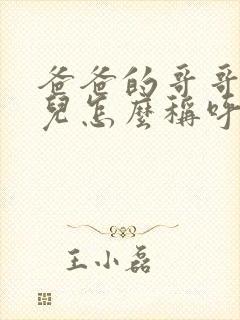 爸爸的哥哥
兒怎麼稱呼
王小磊